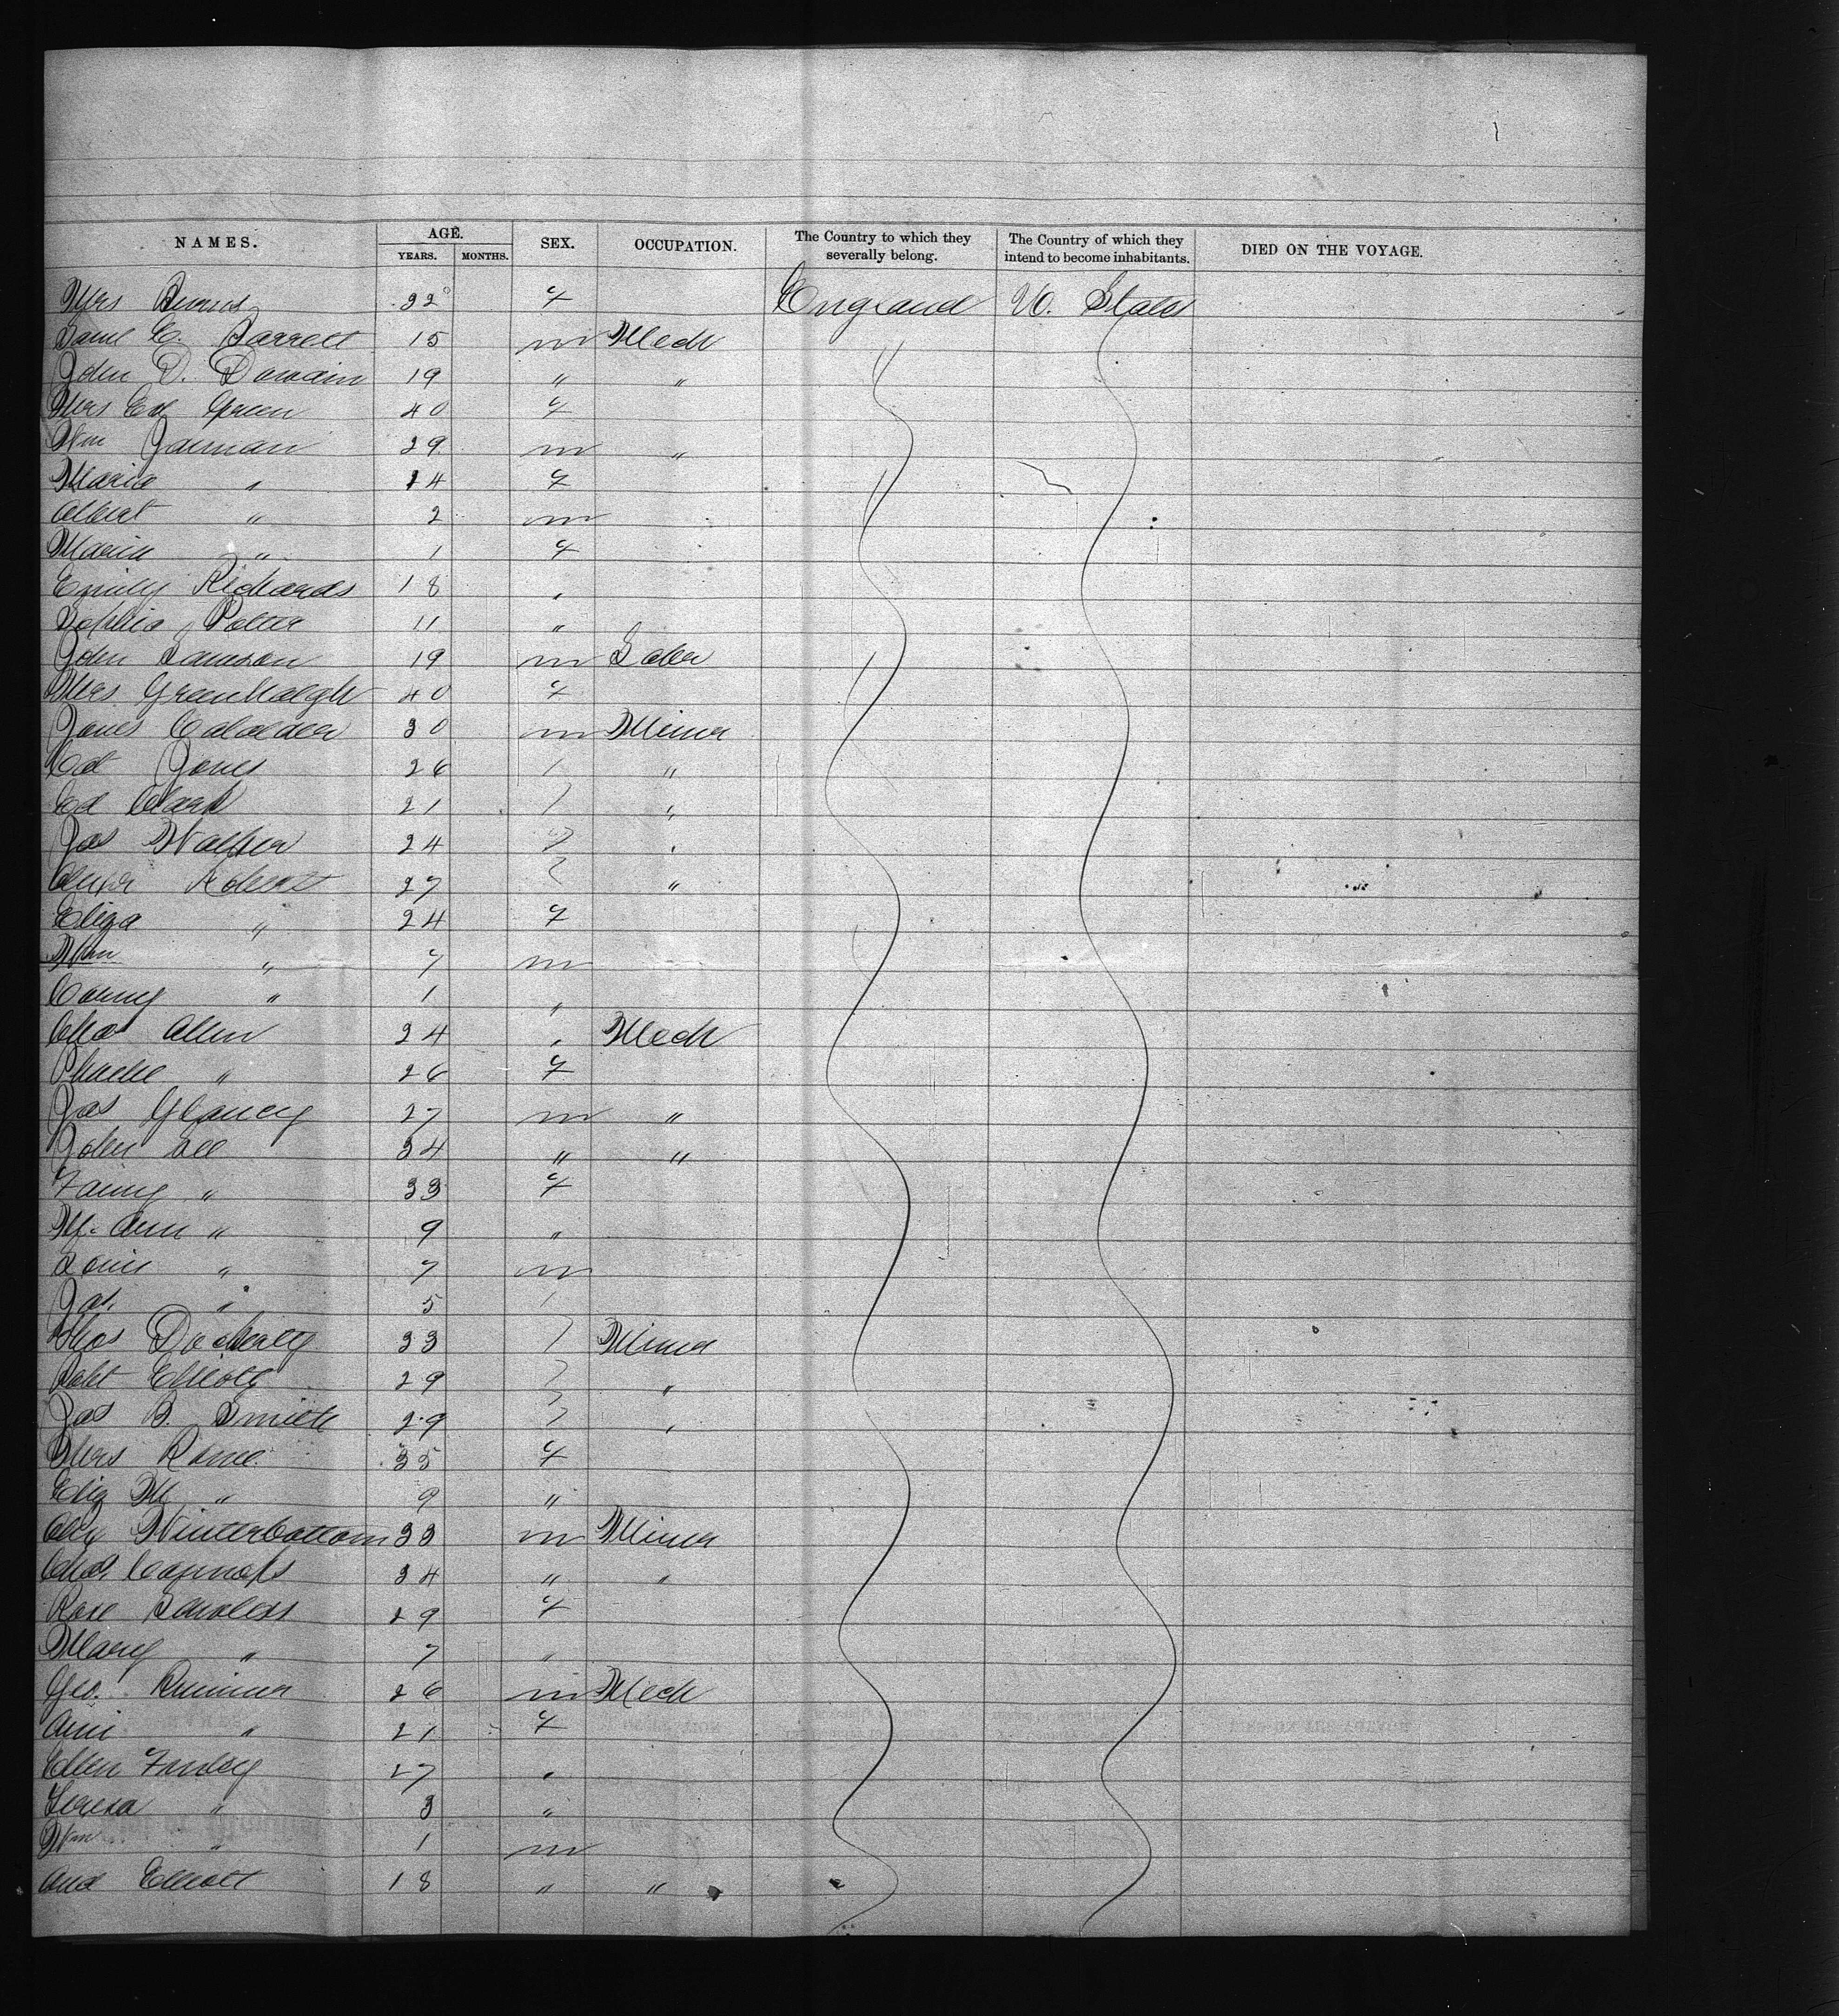 NAMES. AGE. YEARS. MONTHS. SEX. OCCUPATION. The Country to which they severally belong. The Country of which they intend to become inhabitants. DIED ON THE VOYAGE.
Mrs Burns 22 f England U. States
Saml C. Barrett 15 m Mech
John D. 19 " "
Mrs Ed Green 40 f
Wm Jarman 29 m "
Maria " 24 f
Albert " 2 m
Maria " 1 f
Emily Richards 18 "
Sophia Potter 11 "
John Samson 19 m Labr
Mrs Greenhalgh 40 f
James 30 m Miner
Ed Jones 26 "
Ed Clark 21 "
Jas Walker 24 "
Robert 27 "
Eliza " 24 f
Wm " 7 m
" 1 "
Chas Allen 24 " Mech
Phoebe " 26 f
Jas Glancy 27 m "
John Lee 34 " "
Fanny " 33 f
M. Ann " 9 "
Louis " 7 m
Jas. " 5
Thos Docherty 33 Miner
Robt Elliott 29 "
Jas B. Smith 29 "
Mrs Rome 35 f
Eliz M " 9 "
Winterbottom 33 m Miner
Chas 34 " "
Rose 29 f
Mary " 7 "
Geo. Rimmer 26 m Mech
" 21 f
Ellen Finley 27 "
Teresa " 3 "
Wm " 1 m
And Elliott 18 " "